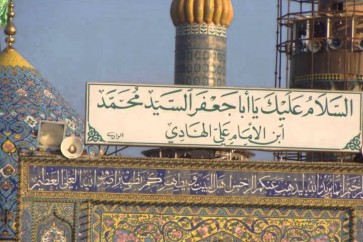 السلام عليك يا أبا جعفر السيد محمد
ابن الإمام علي الهادي
الله ليذهب عنكم الرجس أهل البيت ويطهركم تطهيرا